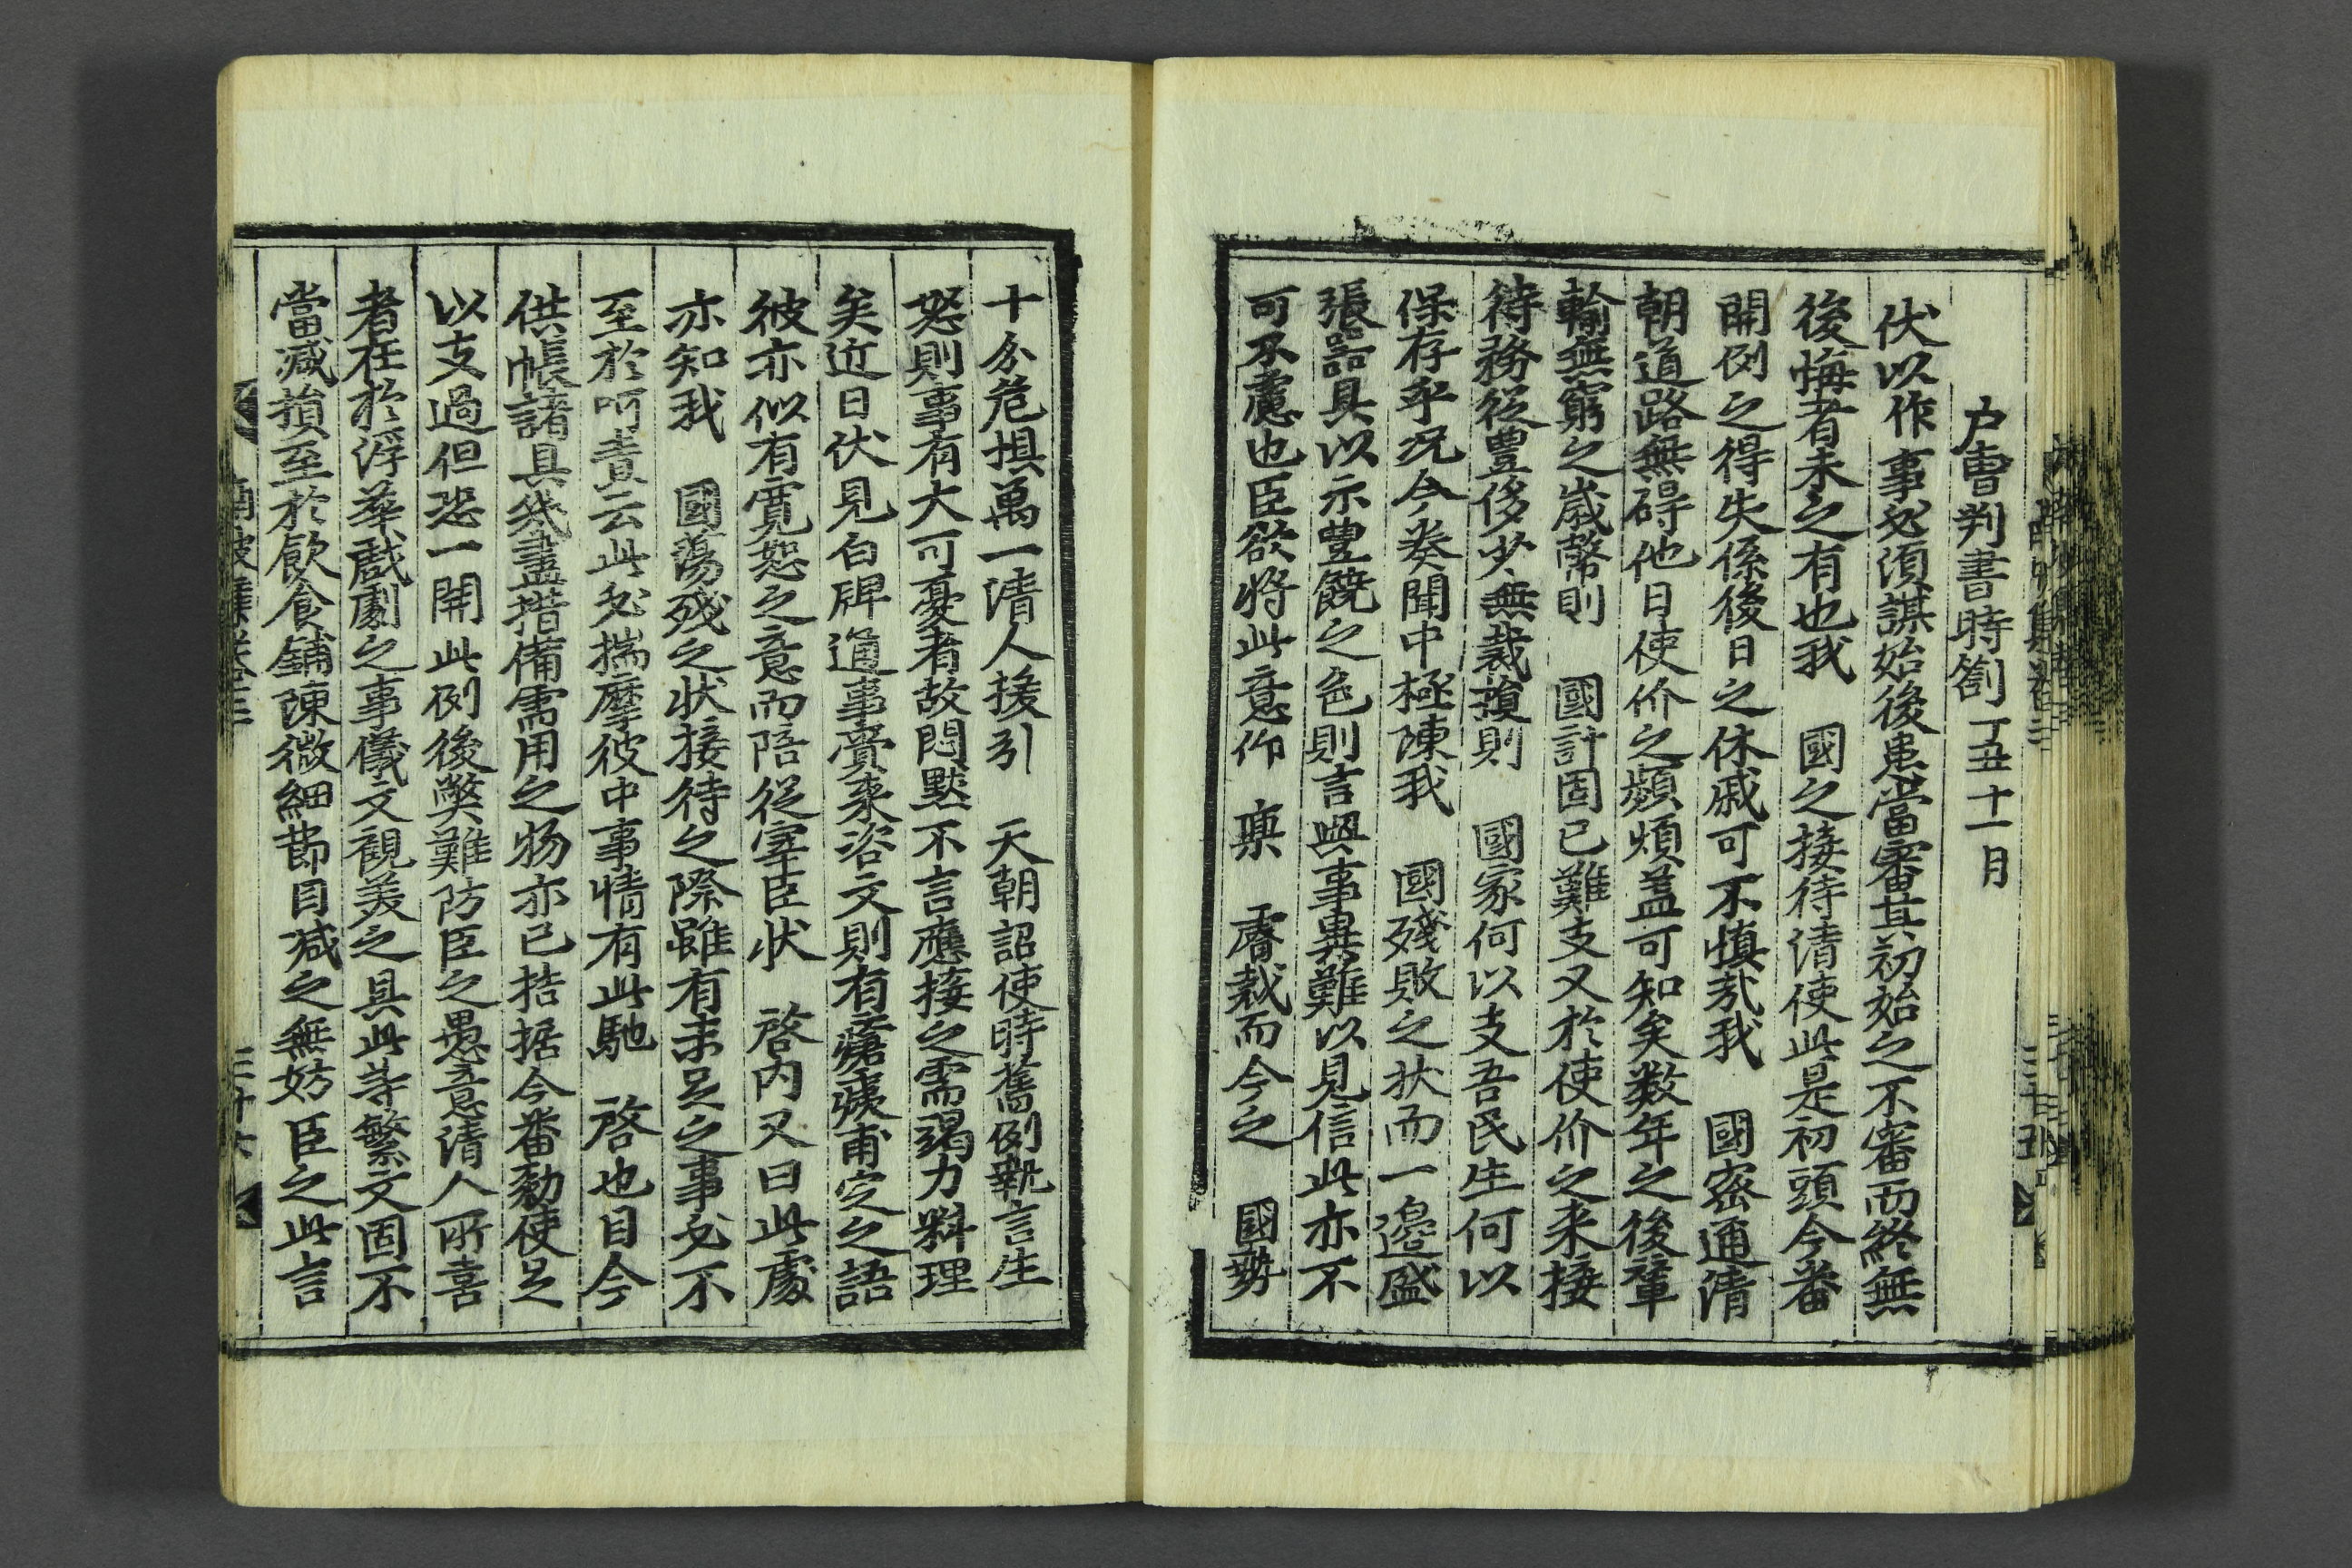 户曹判書時箚 丁丑十一月
伏以作事必須謀始後患當審其初始之不審而終無
後悔者未之有也我 國之接待清使此是初頭今番
開例之得失係後日之休戚可不慎㢤我 國密通清
朝道路無碍他日使价之頻煩盖可知矣数年之後輦
輸無窮之歲幣則 國計固已難支又於使价之来接
待務從豊侈少無裁損則 國家何以支吾民生何以
保存乎况今奏聞中極陳我 國殘敗之状而一邊盛
張器具以示豊饒之色則言與事異難以見信此亦不
可不慮也臣欲将此意仰 稟 睿裁而今之 國勢
十分危惧萬一清人援引 天朝詔使時舊例執言生
怒則事有大可憂者故悶默不言應接之需竭力料理
矣近日伏見白碑通事賫来咨文則有瘡痍甫定之語
彼亦似有寬恕之意而陪從宰臣状 啓内又曰此處
亦知我 國蕩残之状接待之際雖有未足之事必不
至於呵責云此必揣摩彼中事情有此馳 啓也目今
供帳諸具幾盡措備需用之物亦已拮据今番勑使足
以支過但恐一開此例後獘難防臣之愚意清人所喜
者在於浮華戱劇之事儀文觀美之具此等繁文固不
當减損至於飮食鋪陳微細節目减之無妨臣之此言
三十六